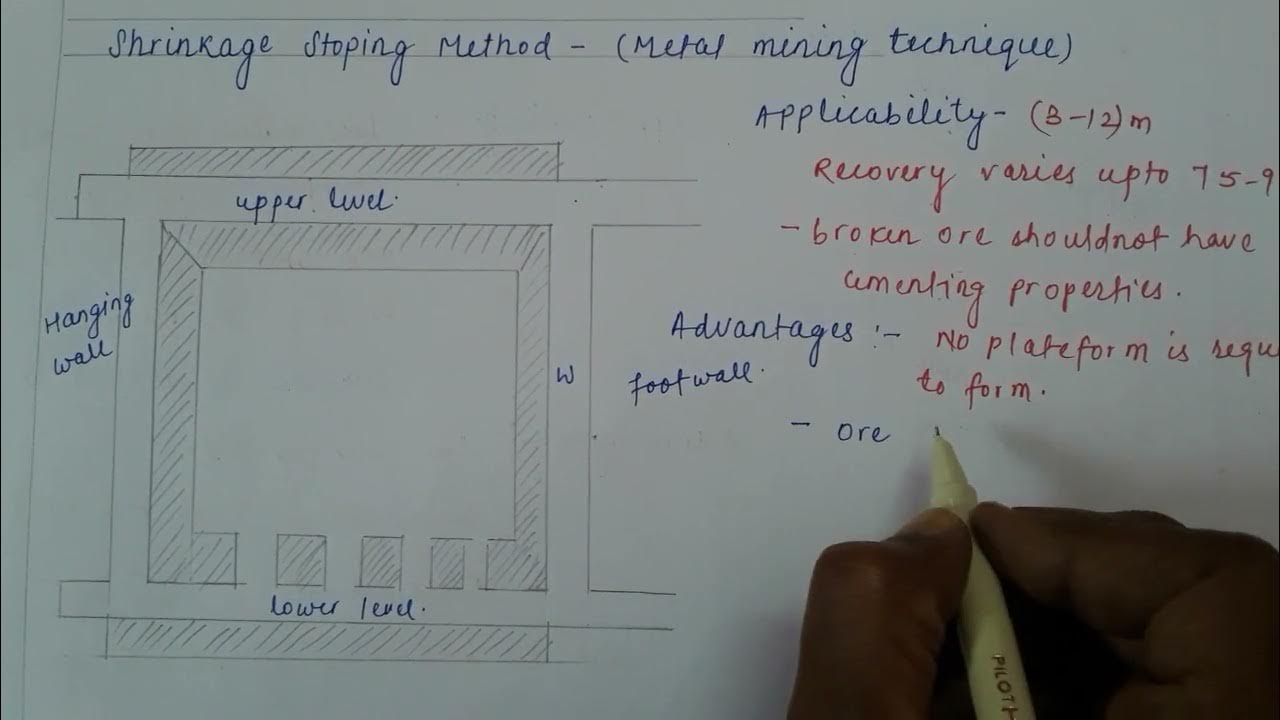 Shrinkage Stoping Method - (Metal mining technique)
Applicability - (3-12)m
Recovery varies upto 75-9
- broken ore shouldnot have
cementing properties.
Advantages :- No plateform is requ
to form.
- ore
upper level.
Hanging
wall
W
footwall.
lower level.
PILOT